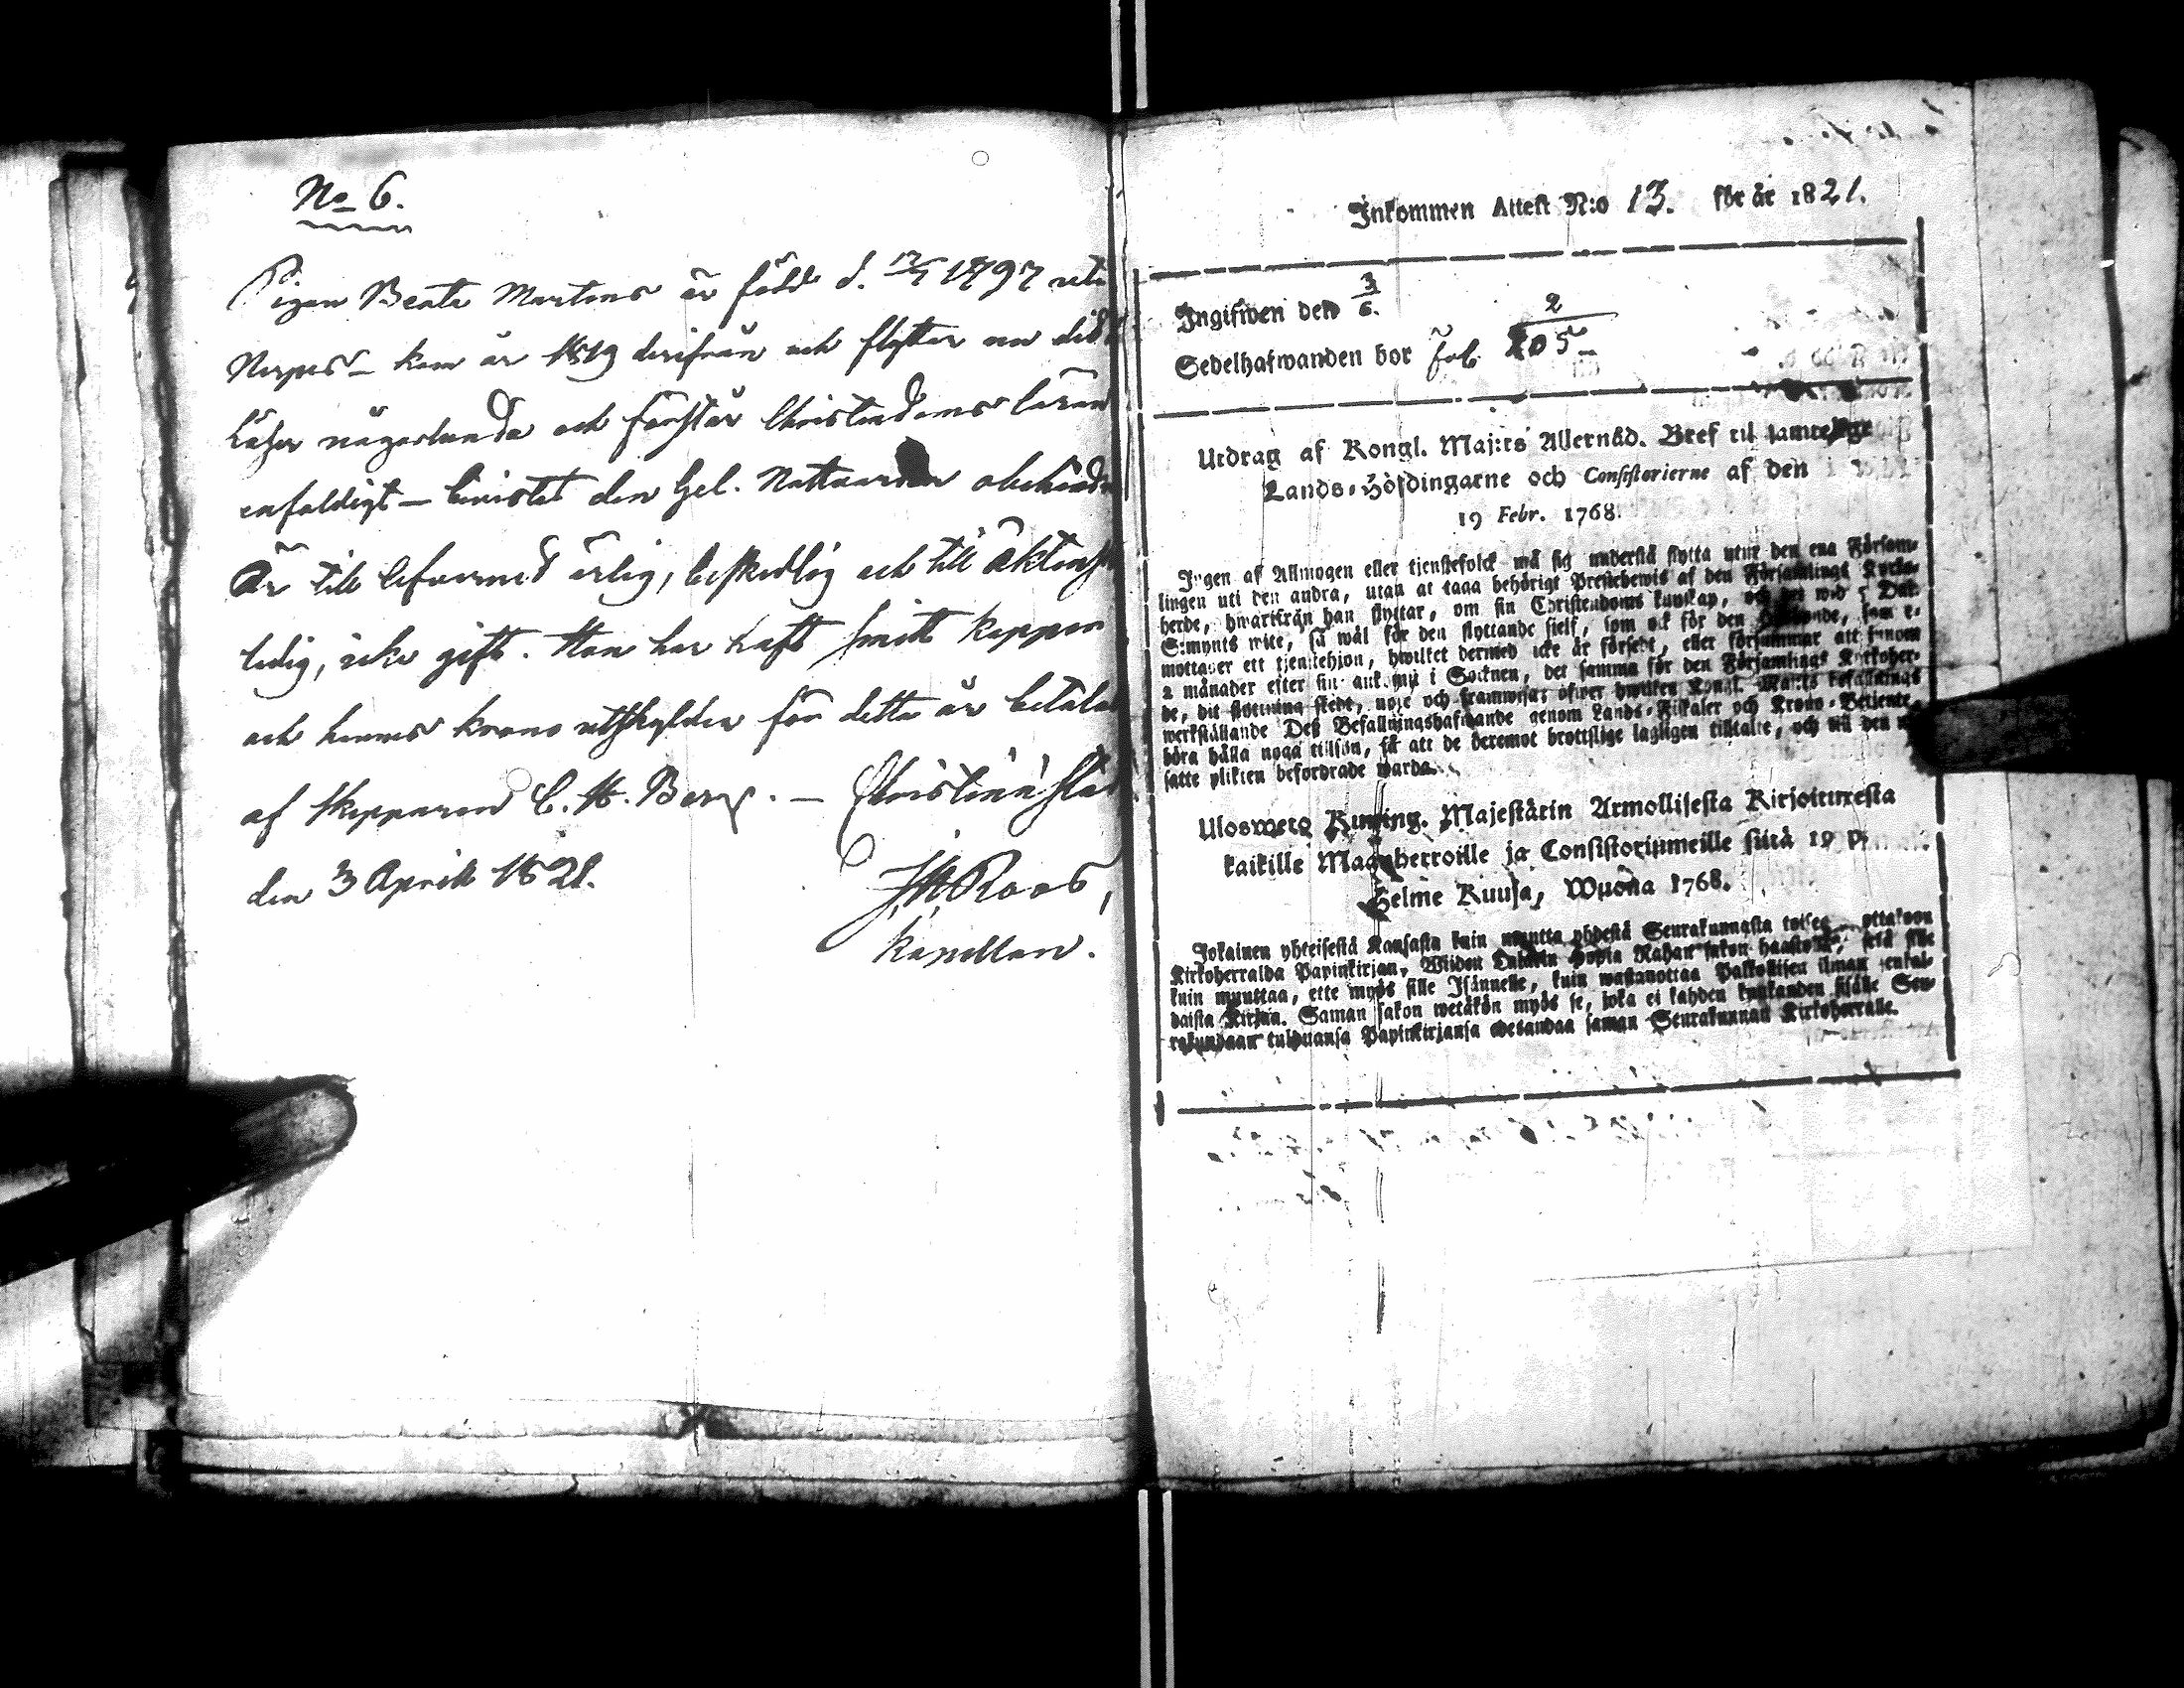 No 6.
Pigan Beata Martens är född d. 17/7 1797 uti
Nerpes – kom år 1819 derifrån och flyttar nu dit
Läser någorlunda och förstår Christendoms läran
enfaldigt – bevistat den hel. Nattvarden obehindr
Är till lefvernet ärlig, beskedlig och till äktensk
ledig, icke gift. Hon har haft smitt koppor
och hennes krono utskylder för detta år betalas
af Skepparen C. H. Berg. – Christinæ Stad
den 3 Aprill 1821.
J. H. Roos,
Kapellan.
Inkommen Attest N:o 13. för år 1821.
Ingifwen den 3/6.
Sedelhafwanden bor fol. 205 2
Utdrag af Kongl. Maj:ts Allernåd. Bref til samtelige
Lands-Höfdingarne och Consistorierne af den
19 Febr. 1768.
Ingen af Allmogen eller tjenstefolck må sig understå flytta utur den ena Försam-
lingen uti den andra, utan at taga behörigt Prestebewis af den Församlings Kyrko-
herde, hwarifrån han flyttar, om sin Christendoms kunskap, och det wid 5 Dal.
S:mynts wite, så wäl för den flyttande sielf, som ock för den Husbonde, som e-
mottager ett tjenstehjon, hwilket dermed icke är försedt, eller försummar att innom
2 månader efter sin ankomst i Socknen, det samma för den Församlings Kyrkoher-
de, dit flyttning skedt, upte och framwisar öfwer hwilken Kongl. Maj:ts befallnings
werkställande Deß Befallningshafwande genom Lands-Fiskaler och Krono-Betjente
böra hålla noga tillsyn, så att de deremot brottslige lagligen tilltalte, och till den ut
satte plikten befordrade warda.
Uloswetö Kuning. Majestätin Armollisesta Kirjoituxesta
kaikille Maanherroille ja Consistoriumeille siitä 19 p.
Helme Kuusa, Wuona 1768.
Jokainen yhteisestä Kansasta kuin muutta yhdestä Seurakunnasta toiseen ottakoon
Kirkoherralda Papinkirjan, Wiiden Dalarin Hopia Rahan sakon haastolla, sekä sille
kuin muuttaa, ette myös sille Isännelle, kuin wastanottaa Palkollisen ilman senkal-
daista Kirjaa. Saman sakon wetäkön myös se, joka ei kahden kuukauden sisälle Seu-
rakundaan tulduansa Papinkirjansa edesandaa saman Seurakunnan Kirkoherralle.